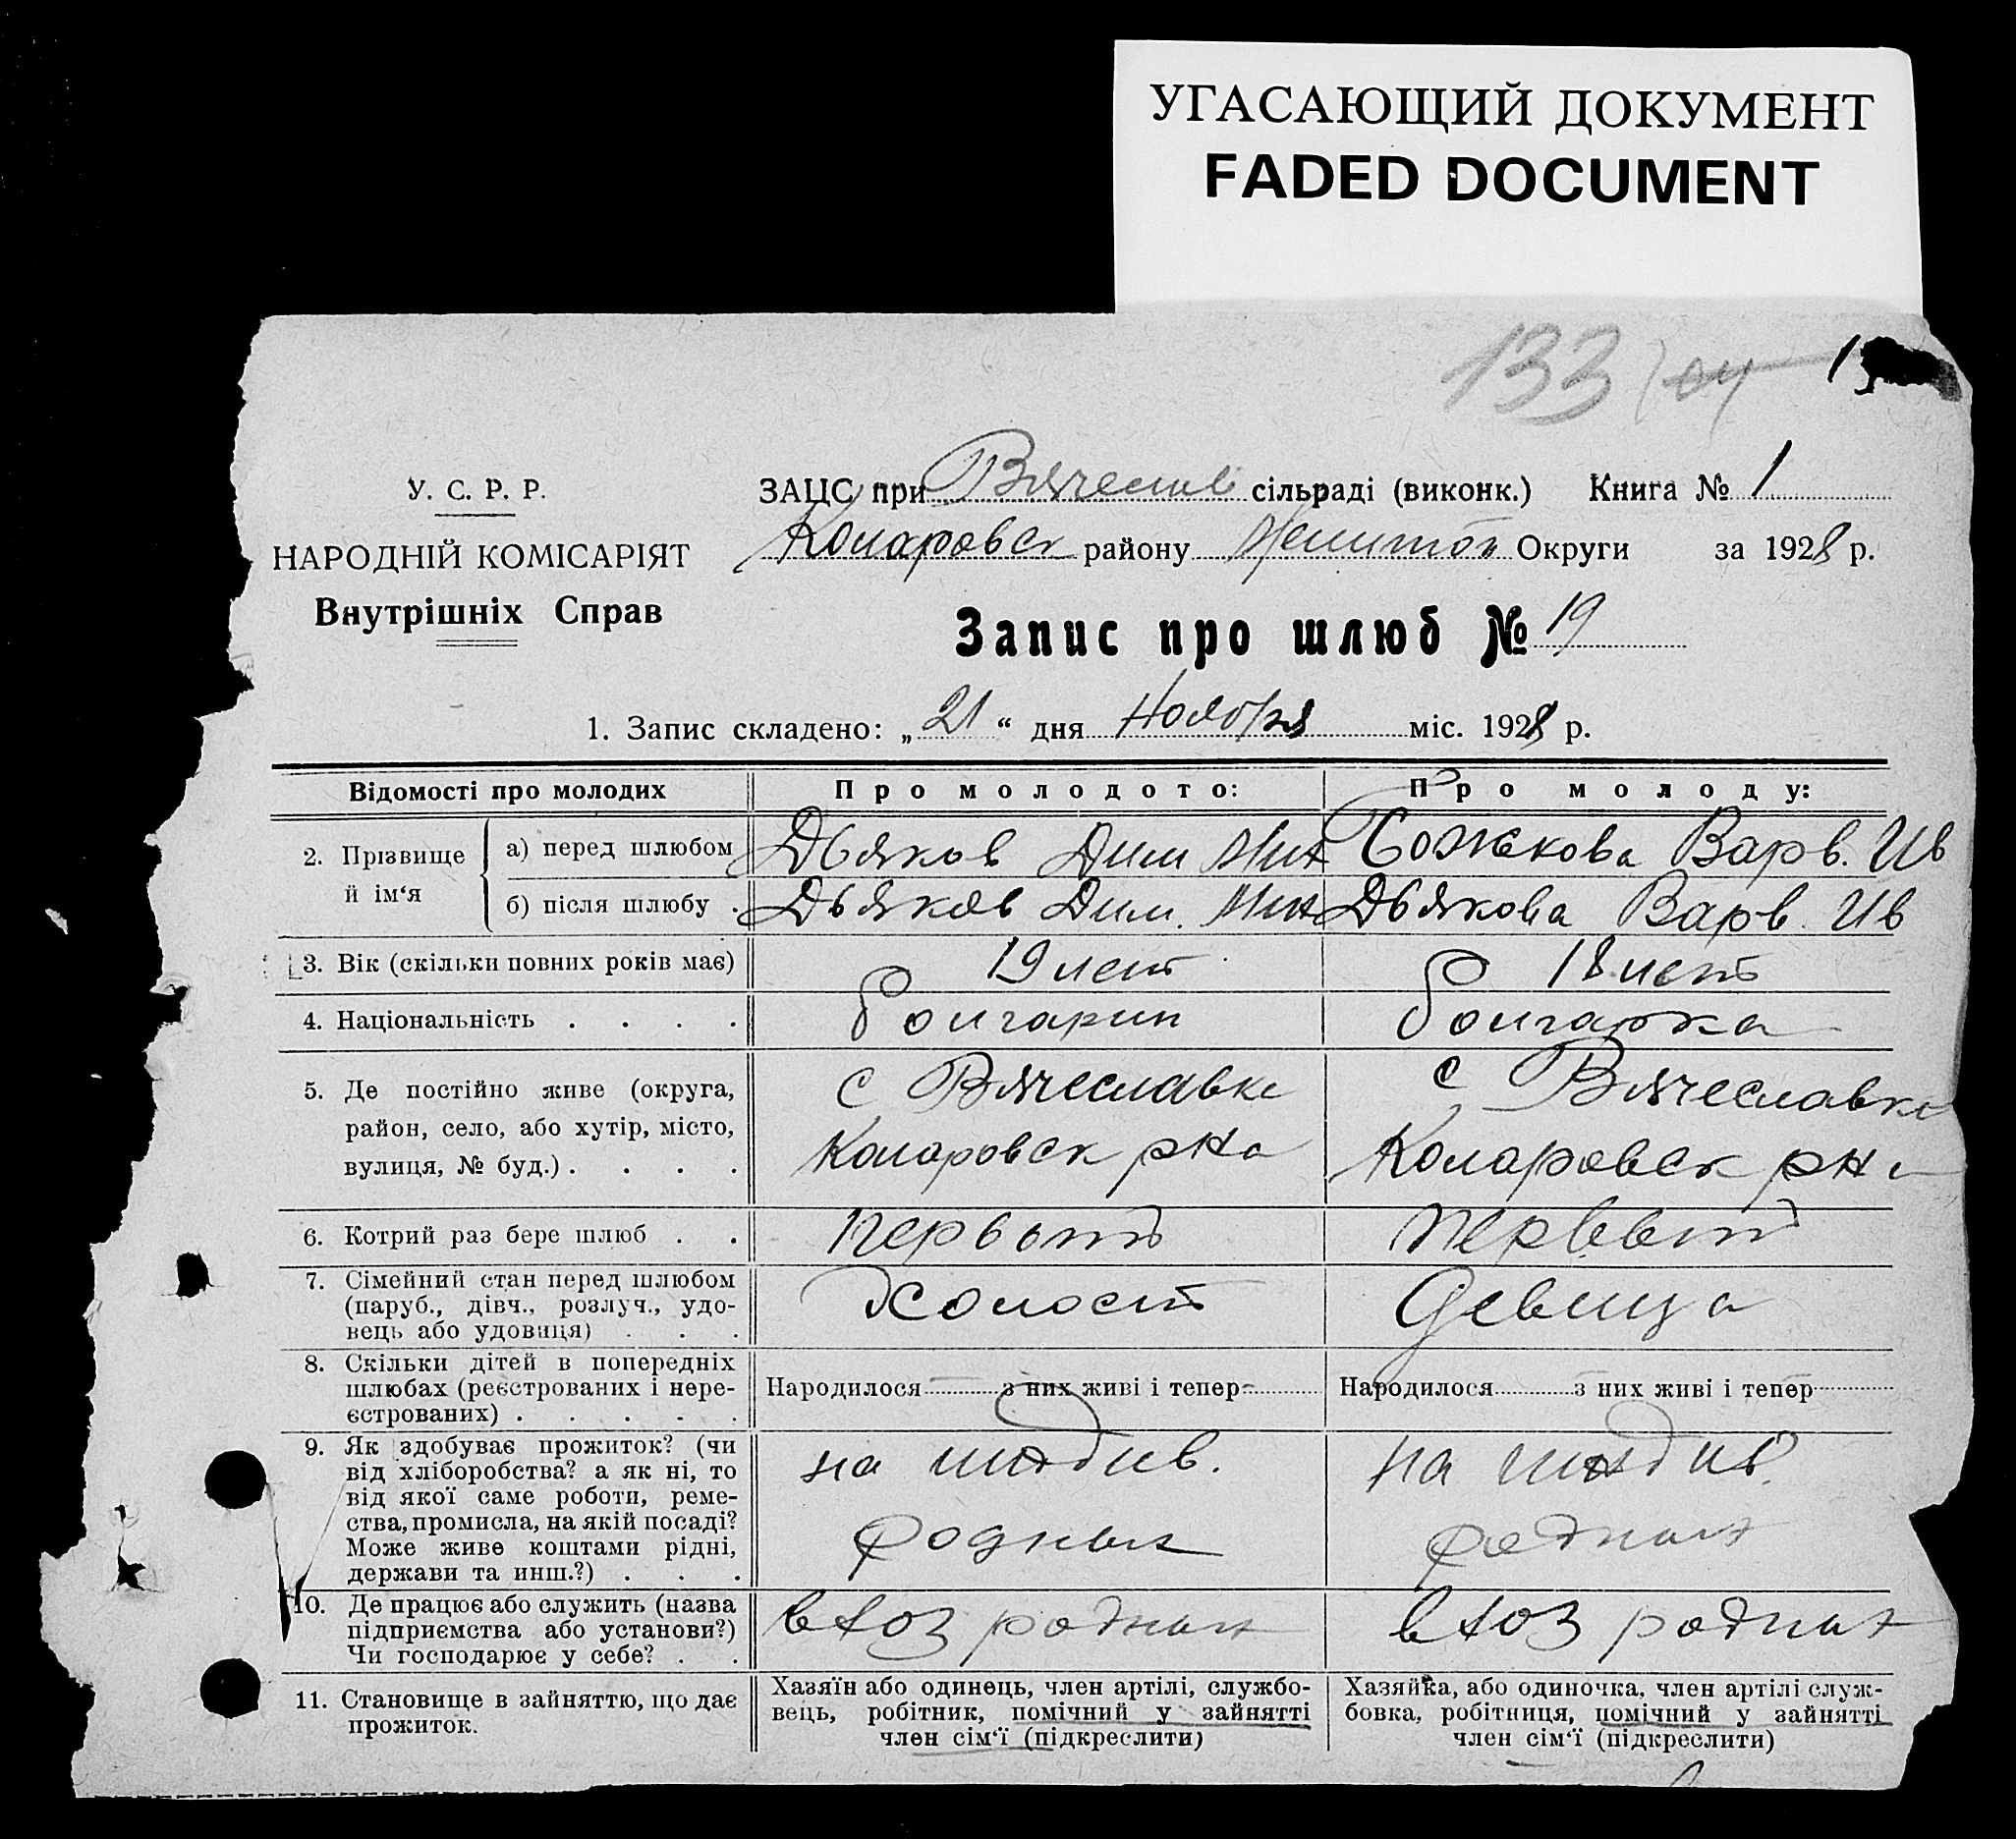 УГАСАЮЩИЙ ДОКУМЕНТ
FADED DOCUMENT
133
У. С. Р. Р.
НАРОДНІЙ КОМІСАРІЯТ
Внутрішніх Справ
ЗАЦС при Вячеслав сільраді (виконк.) Книга № 1
Коларовск району Мелитоп Округи за 1928 р.
Запис про шлюб № 19
1. Запис складено: „21“ дня Ноября міс. 1928 р.
Відомості про молодих
Про молодого:
Про молоду:
2. Прізвище й ім‘я
а) перед шлюбом
Дьяков Дим Мих
Божкова Варв. Ив
б) після шлюбу .
Дьяков Дим. Мих
Дьякова Варв. Ив
3. Вік (скільки повних років має)
19 лет
18 лет
4. Національність . . . .
болгарин
болгарка
5. Де постійно живе (округа,
район, село, або хутір, місто,
вулиця, № буд.) . . . .
с Вячеславке
Коларовск рна
с Вячеславке
Коларовск рна
6. Котрий раз бере шлюб . .
первый
первый
7. Сімейний стан перед шлюбом
(паруб., дівч., розлуч., удо-
вець або удовиця) . . .
Холост
Девица
8. Скільки дітей в попередніх
шлюбах (реєстрованих і нере-
єстрованих) . . . . .
Народилося з них живі і тепер
Народилося з них живі і тепер
9. Як здобуває прожиток? (чи
від хліборобства? а як ні, то
від якої саме роботи, реме-
ства, промисла, на якій посаді?
Може живе коштами рідні,
держави та инш.?) . . .
на иждив.
родных
на иждив.
родных
10. Де працює або служить (назва
підприємства або установи?)
Чи господарює у себе? . .
в хоз родных
в хоз родных
11. Становище в зайняттю, що дає
прожиток.
Хазяїн або одинець, член артілі, службо-
вець, робітник, помічний у зайнятті
член сім‘ї (підкреслити)
Хазяйка, або одиночка, член артілі служ-
бовка, робітниця, помічний у зайнятті
член сім‘ї (підкреслити)